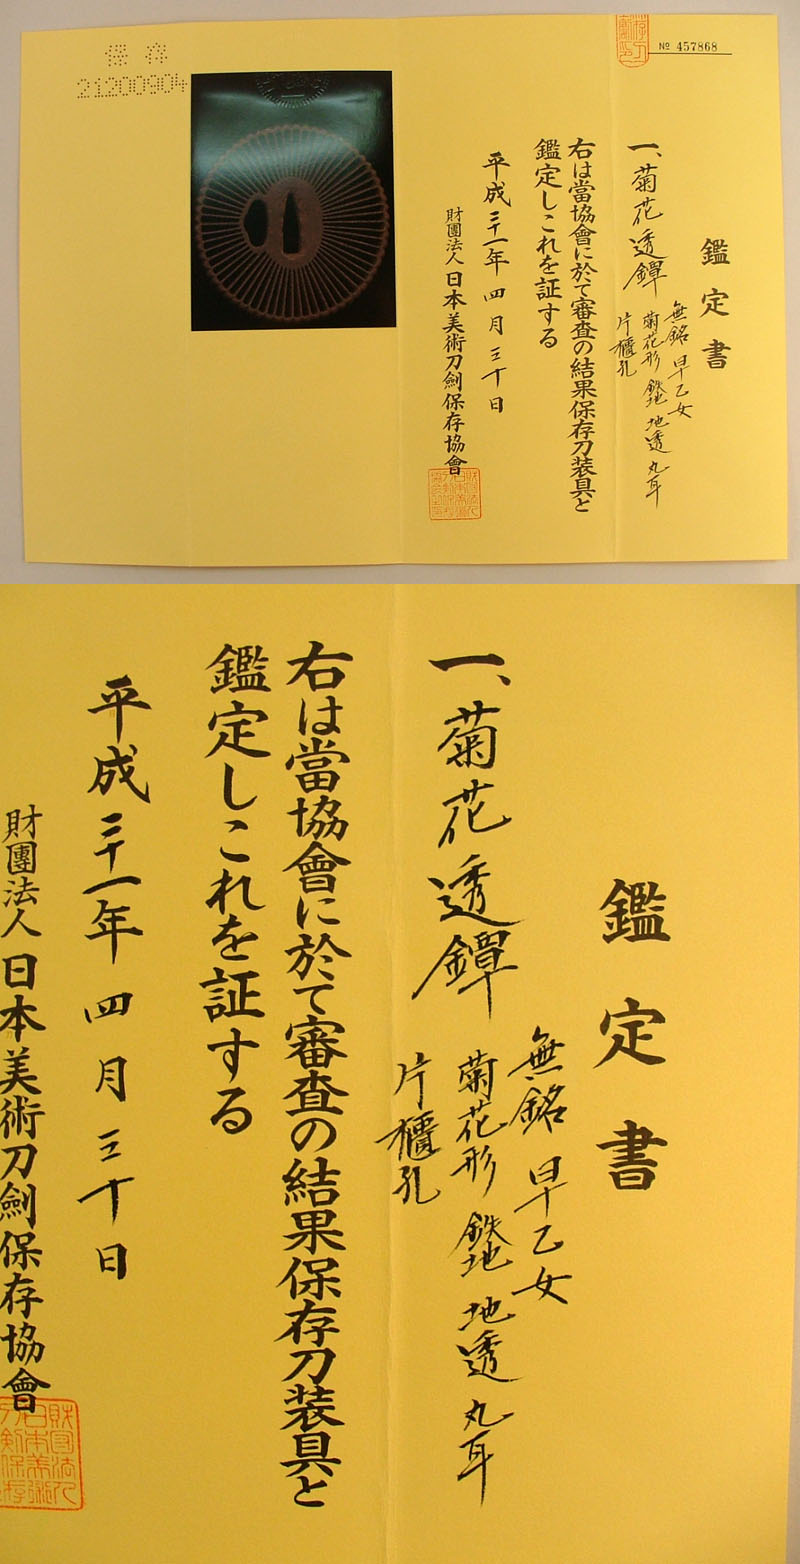 保存
21200904
№ 457868
鑑定書
一、菊花透鐔
無銘 早乙女
菊花形 鉄地 地透 丸耳
片櫃孔
右は當協會に於て審査の結果保存刀装具と
鑑定しこれを証する
平成二十一年四月三十日
財團法人日本美術刀劍保存協會
鑑定書
一、菊花透鐔
無銘 早乙女
菊花形 鉄地 地透 丸耳
片櫃孔
右は當協會に於て審査の結果保存刀装具と
鑑定しこれを証する
平成二十一年四月三十日
財團法人日本美術刀劍保存協會